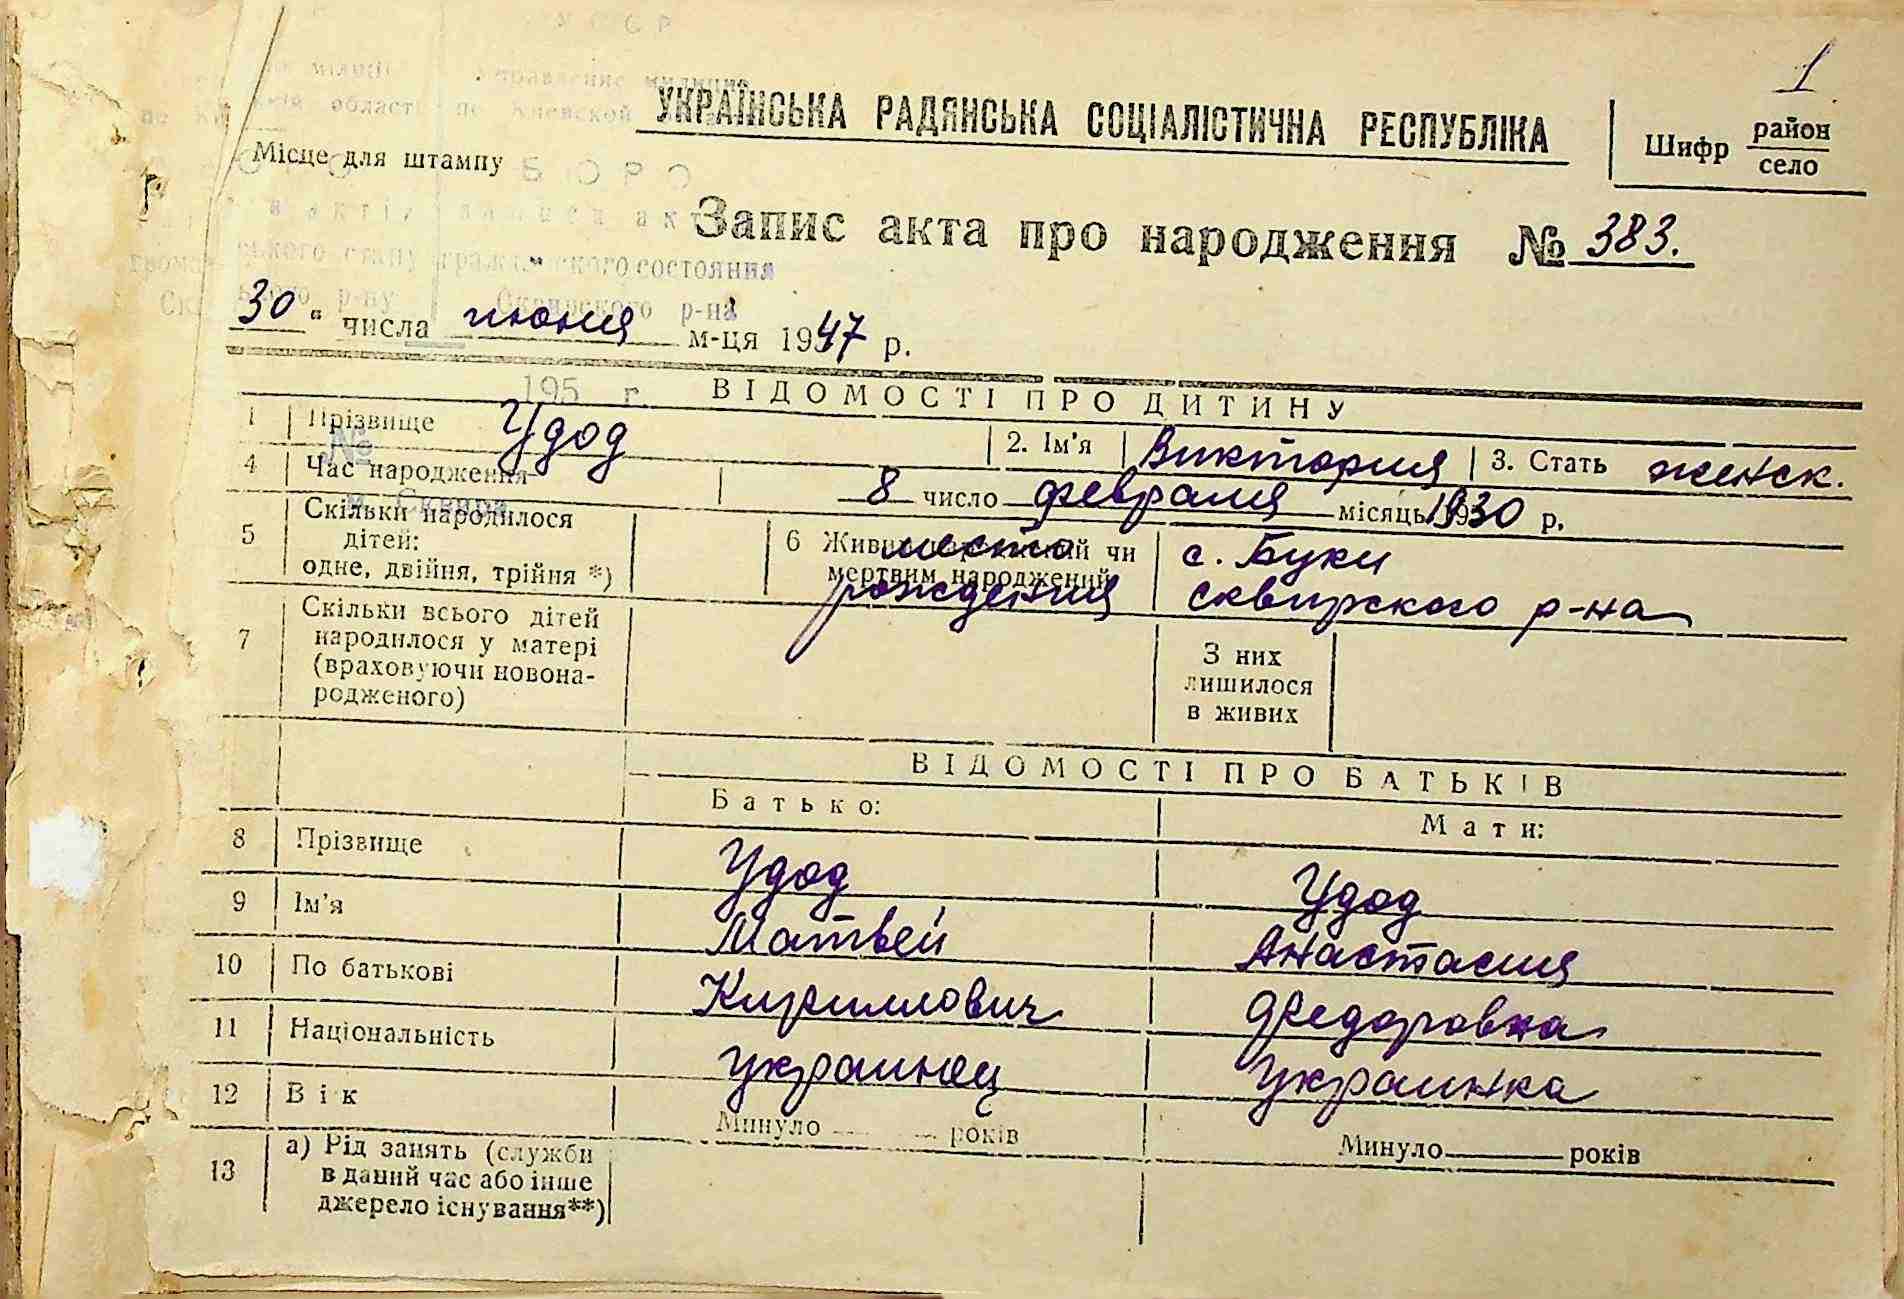 У С С Р
1
Управление милиции
області по Киевской
УКРАЇНСЬКА РАДЯНСЬКА СОЦІАЛІСТИЧНА РЕСПУБЛІКА
Шифр район
село
Місце для штампу
БЮРО
Запис акта про народження № 383.
гражданского состояния
р-ну Сквирского р-на
30 " числа июня м-ця 1947 р.
195 г.
ВІДОМОСТІ ПРО ДИТИНУ
1 Прізвище Удод 2. Ім'я Виктория 3. Стать женск.
№
4 Час народження 8 число февраля місяць 1930 р.
м. Сквира
5 Скільки народилося дітей: одне, двійня, трійня *)
6 Живим народжений чи мертвим народжений
место рождения
с. Буки
сквирского р-на
7 Скільки всього дітей народилося у матері (враховуючи новонародженого)
З них лишилося в живих
ВІДОМОСТІ ПРО БАТЬКІВ
Батько: Мати:
8 Прізвище Удод Удод
9 Ім'я Матвей Анастасия
10 По батькові Кириллович Федоровна
11 Національність украинец Украинка
12 Вік Минуло років Минуло років
13 а) Рід занять (служби
в даний час або інше
джерело існування**)